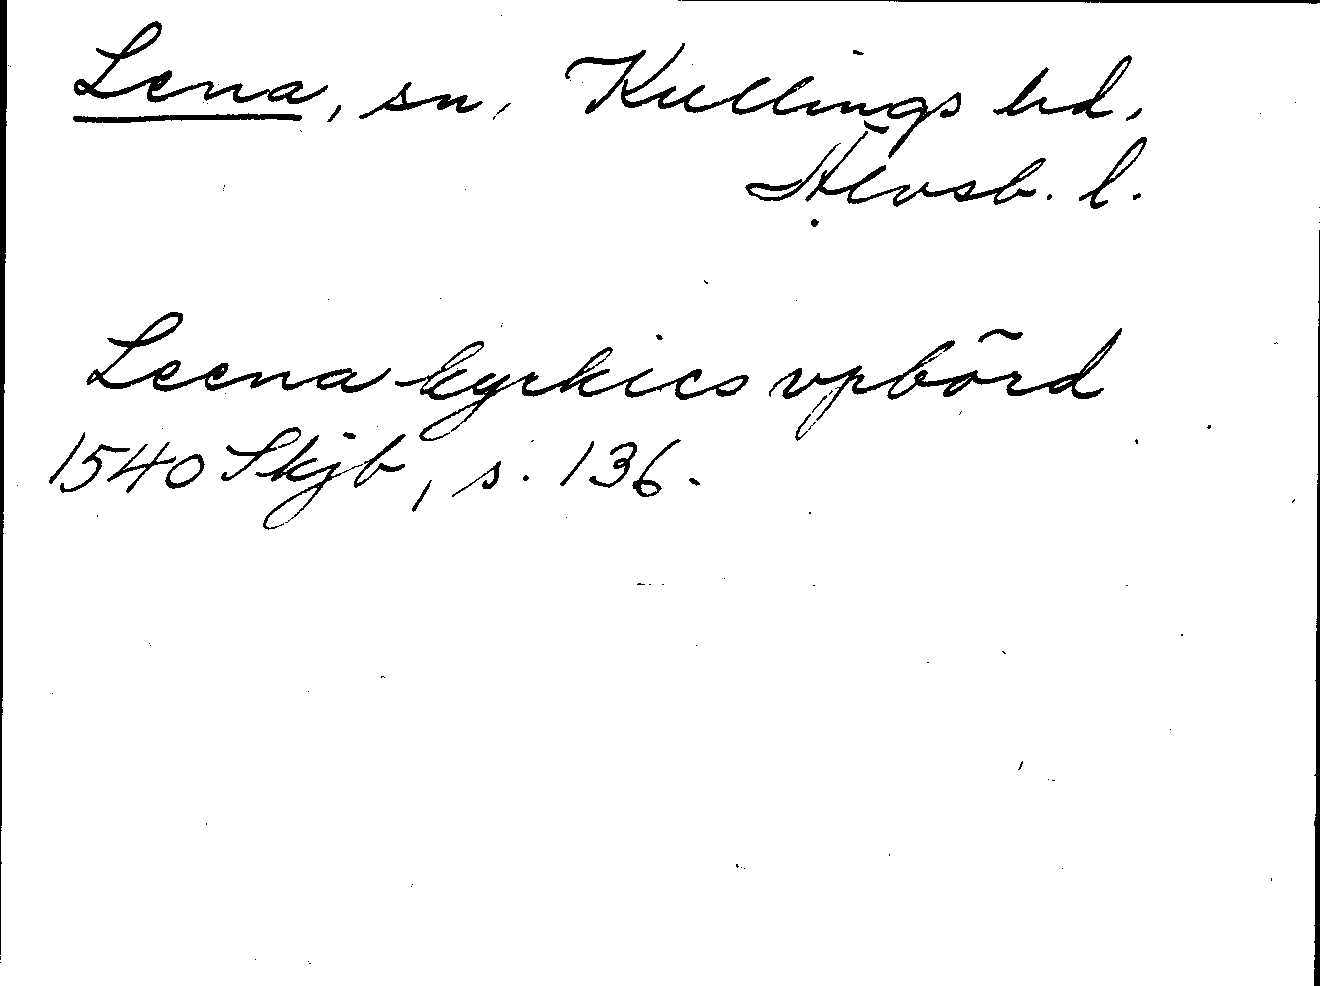 Lena, sn, Kullings hd,
Älvsb. l.
Leena kyrkies vpbörd
1540 Skjb, s. 136.